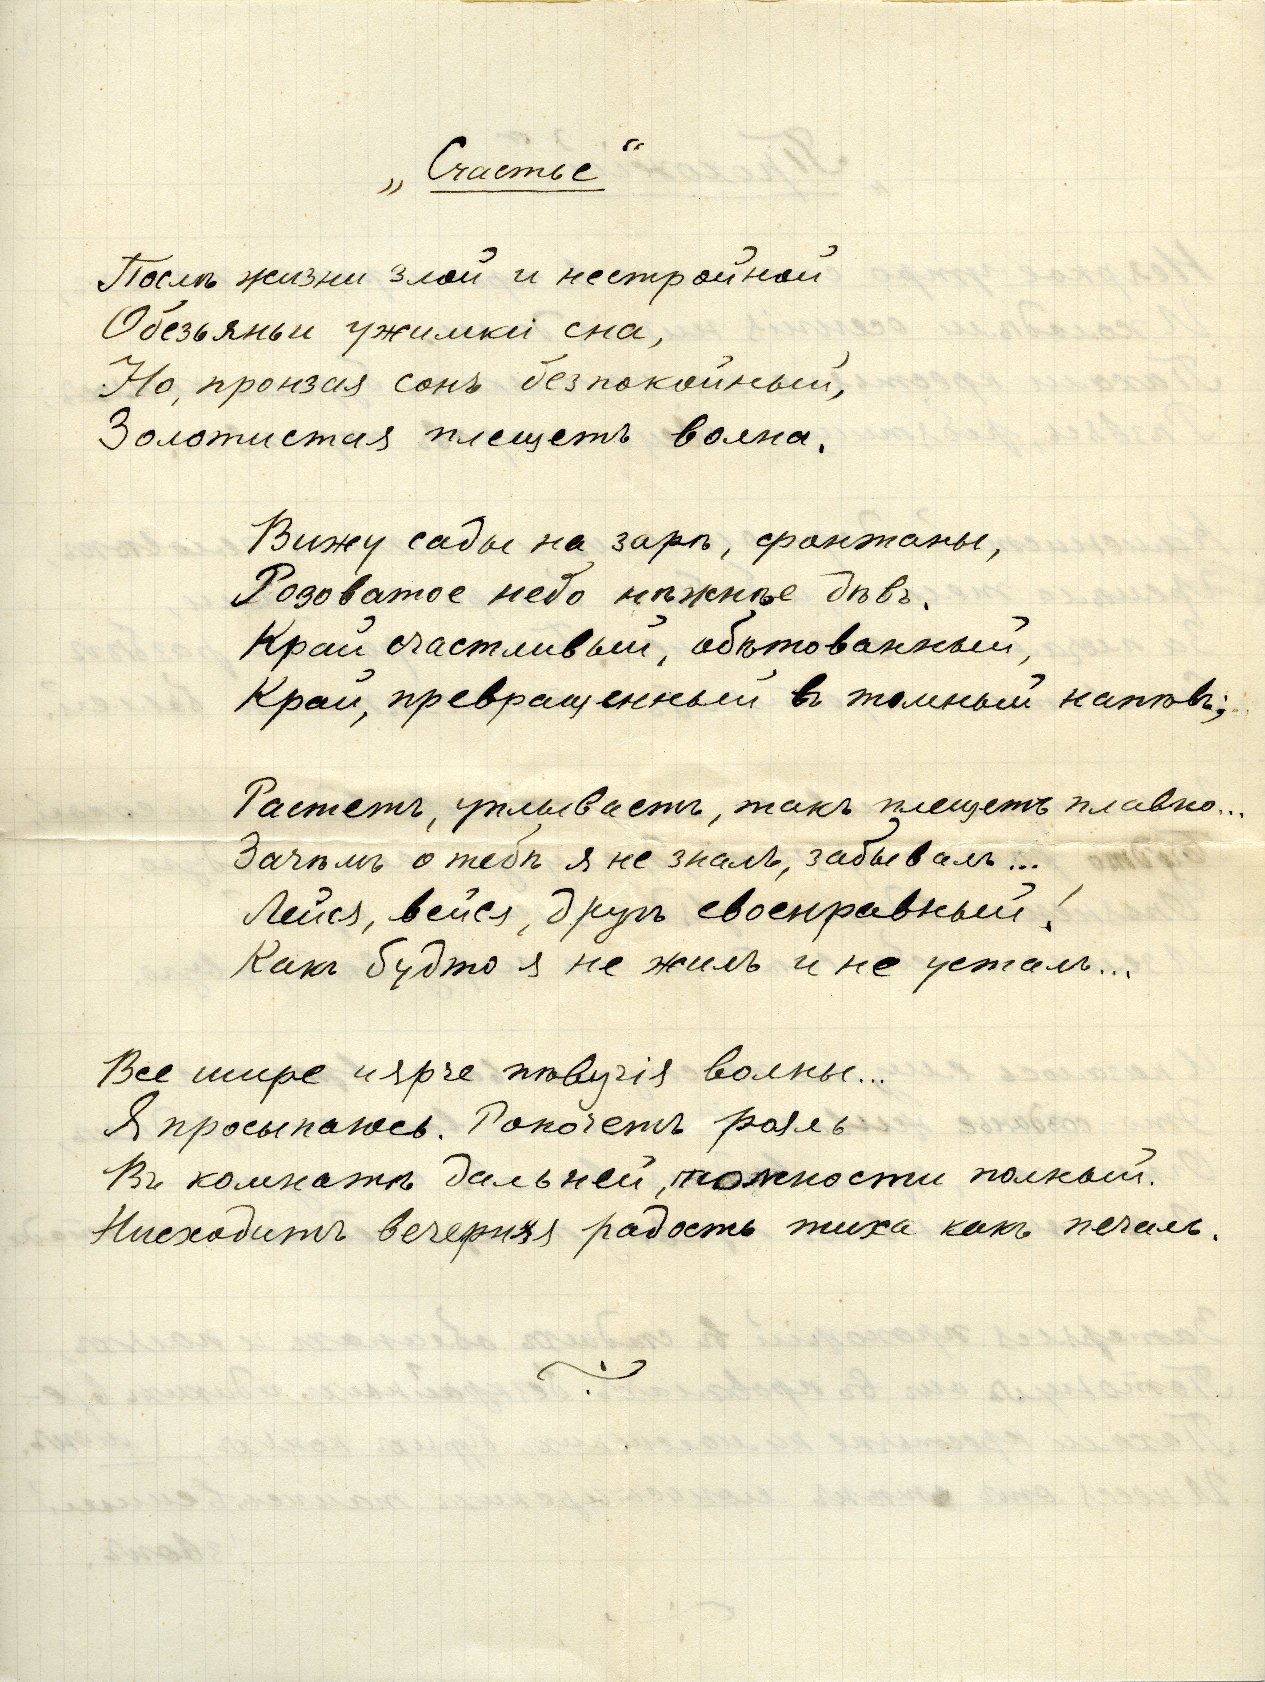 „Счастье“
Послѣ жизни злой и нестройной
Обезьяньи ужимки сна,
Но, пронзая сонъ безпокойный,
Золотистая плещетъ волна.
Вижу сады на зарѣ, фонтаны,
Розоватое небо нѣжнѣе дѣвъ.
Край счастливый, обѣтованный,
Край, превращенный въ томный напѣвъ;
Растетъ, уплываетъ, такъ плещетъ плавно...
Зачѣмъ о тебѣ я не зналъ, забывалъ...
Лейся, вейся, другъ своенравный!
Какъ будто я не жилъ и не усталъ...
Все шире и ярче пѣвучія волны...
Я просыпаюсь. Рокочетъ рояль
Въ комнатѣ дальней, нѣжности полный.
Нисходитъ вечерняя радость тиха какъ печаль.